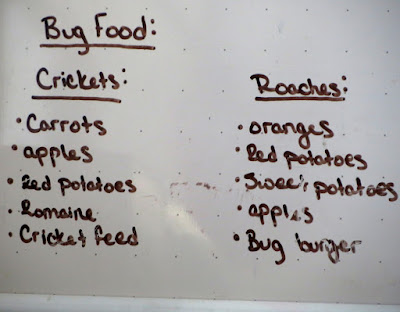 Bug Food:
Crickets:
• Carrots
• apples
• Red potatoes
• Romaine
• Cricket feed
Roaches:
• oranges
• Red potatoes
• Sweet potatoes
• apples
• Bug burger